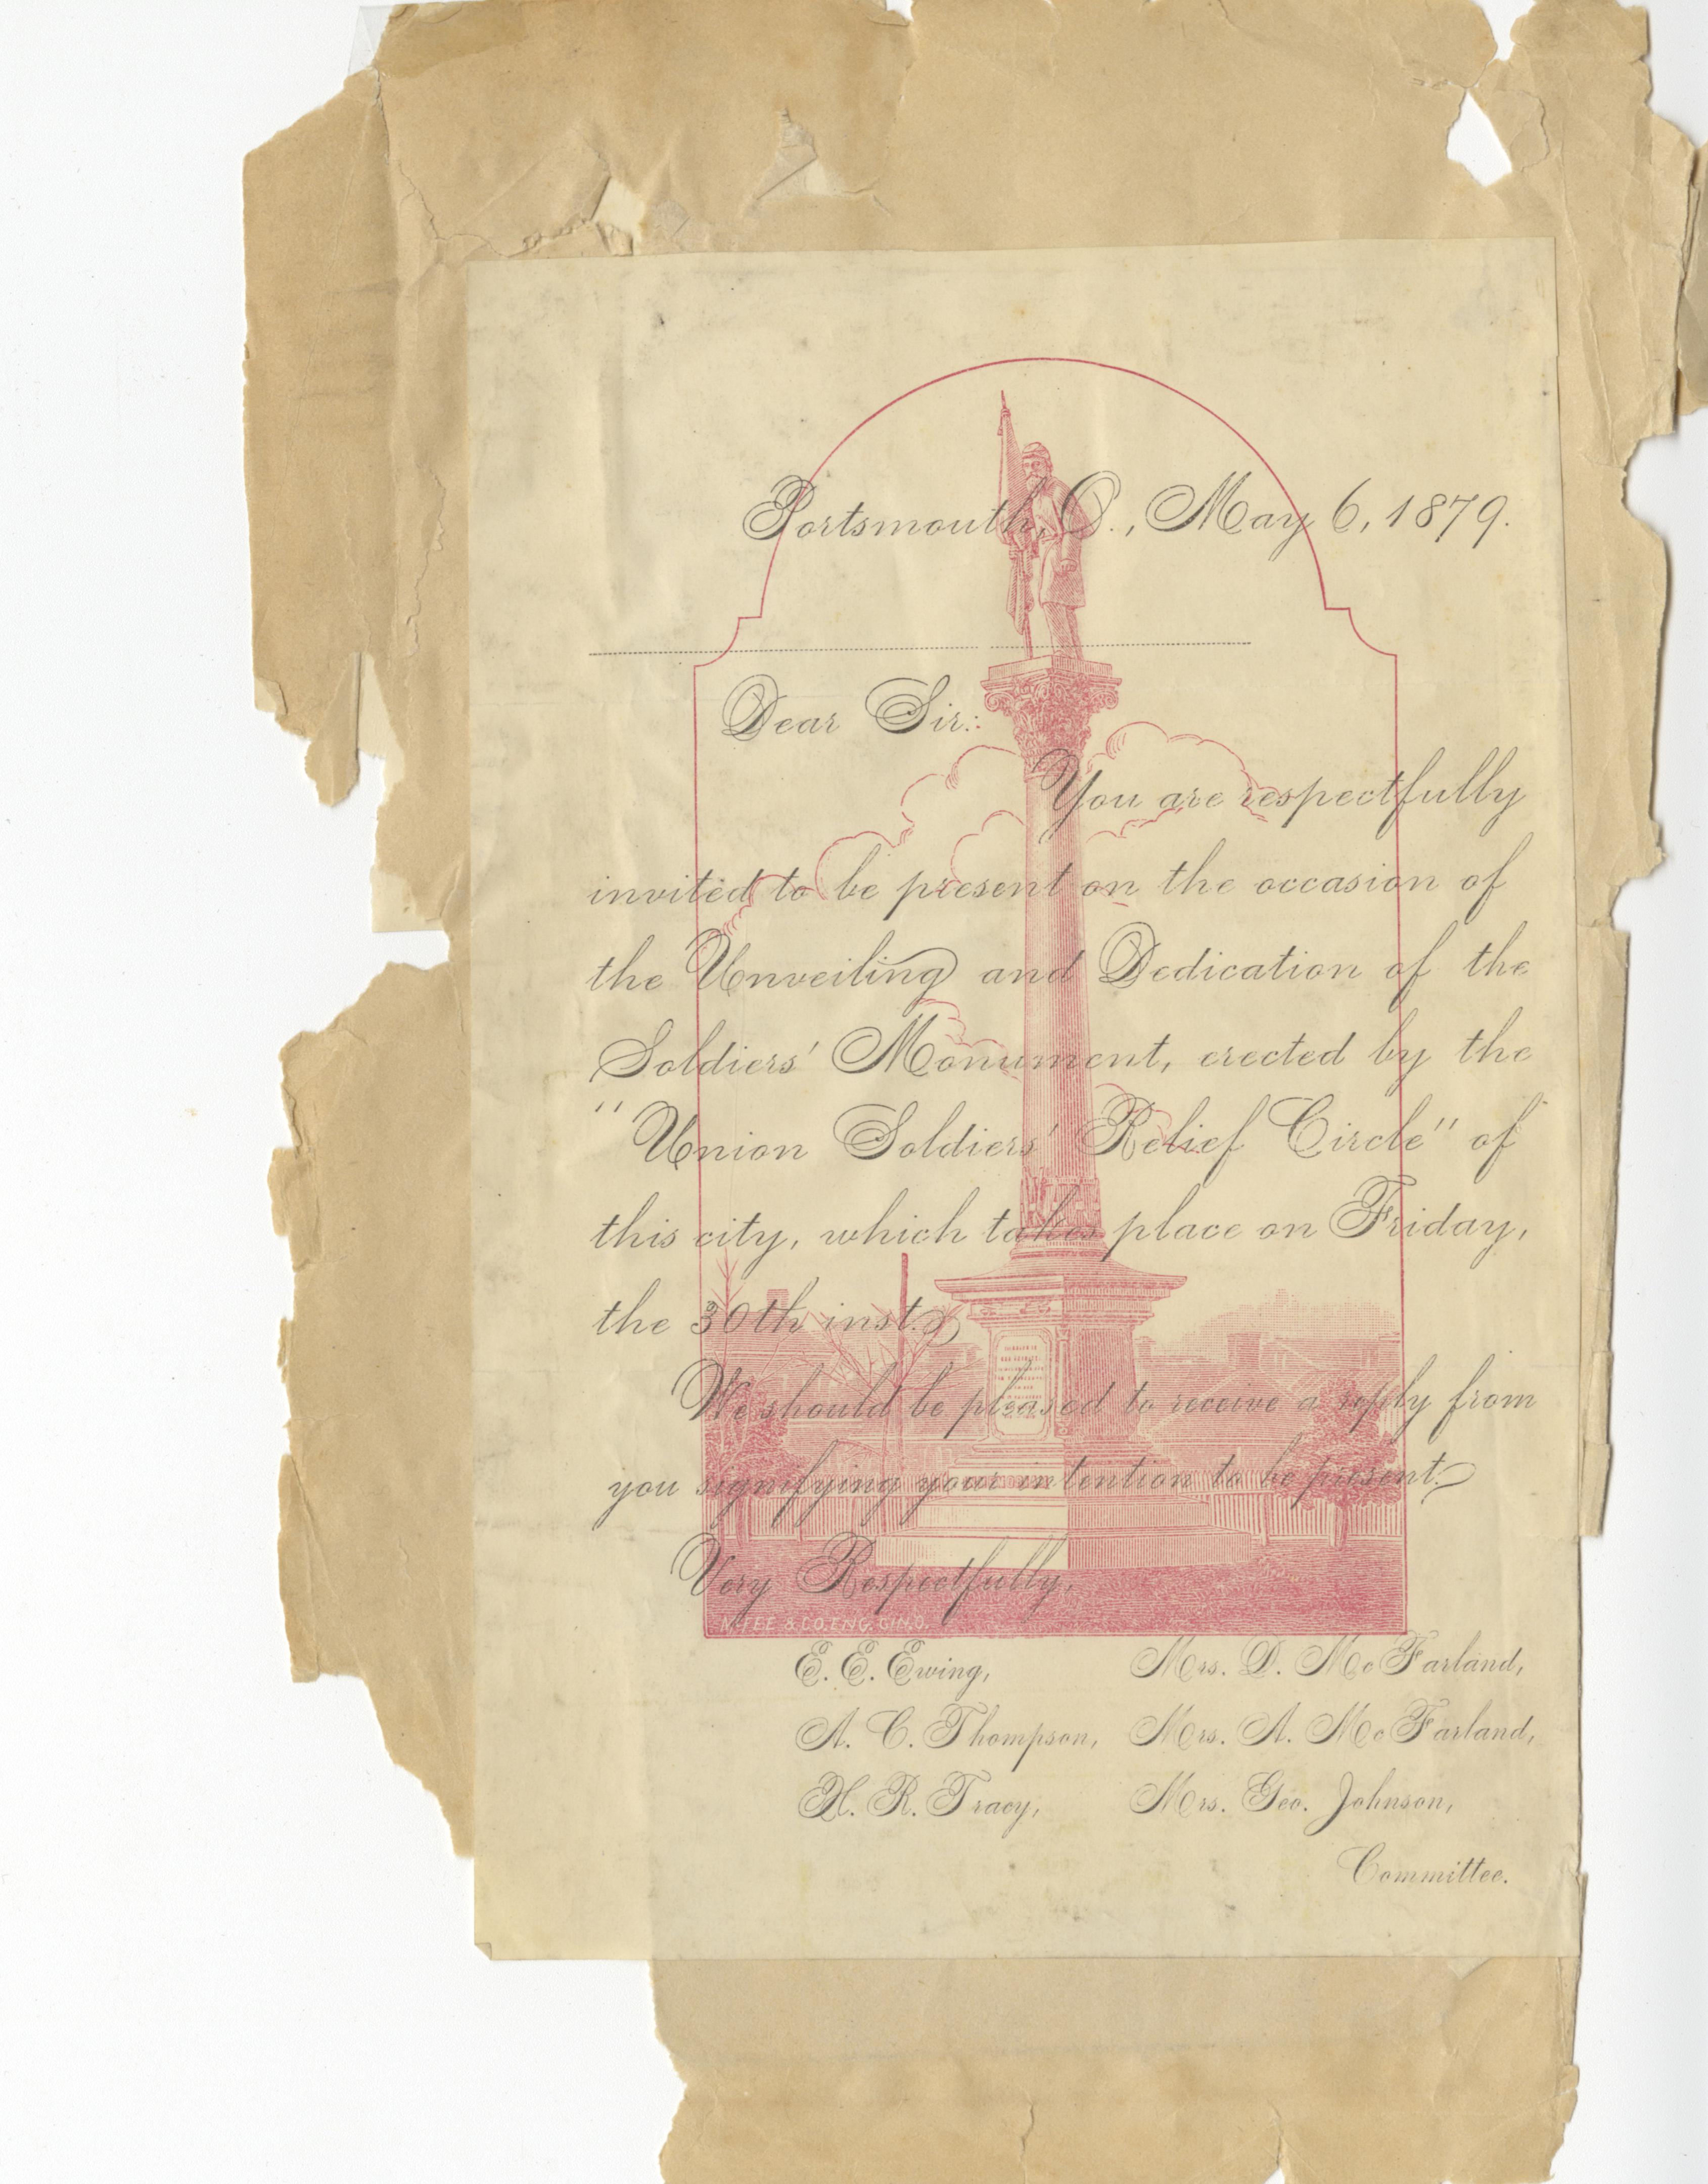 Portsmouth, O., May 6, 1879.
Dear Sir:
You are respectfully
invited to be present on the occasion of
the Unveiling and Dedication of the
Soldiers' Monument, erected by the
"Union Soldiers' Relief Circle" of
this city, which takes place on Friday,
the 30th inst.
We should be pleased to receive a reply from
you signifying your intention to be present.
Very Respectfully,
& CO. ENG. CIN. O.
E. E. Ewing, Mrs. D. McFarland,
A. C. Thompson, Mrs. A. McFarland,
H. R. Tracy, Mrs. Geo. Johnson,
Committee.